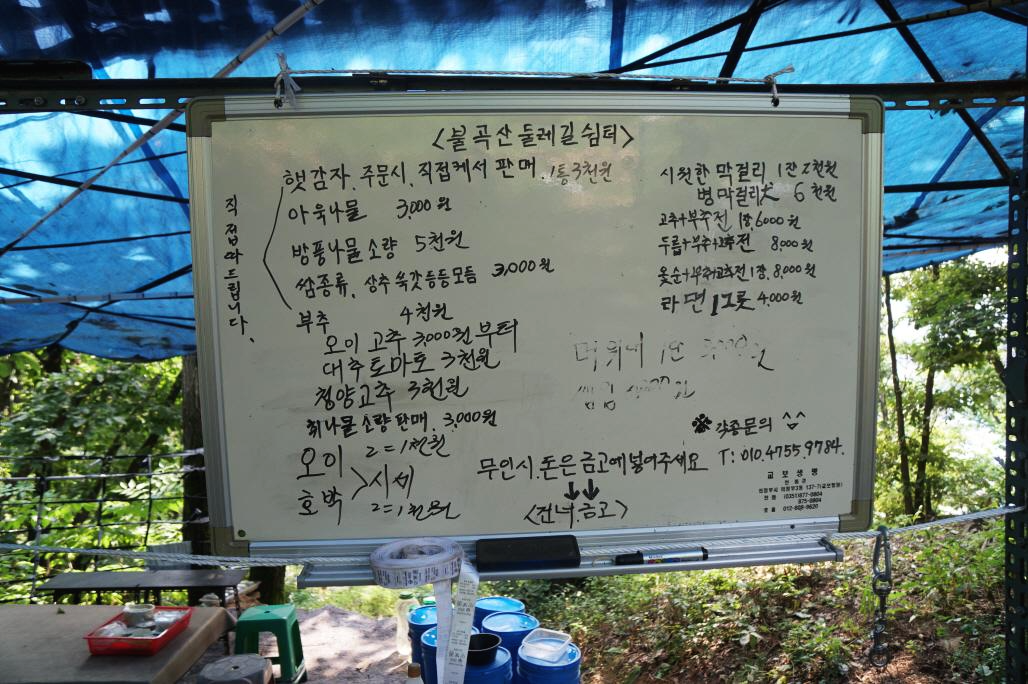 <불곡산 둘레길 쉼터>
햇감자. 주문시. 직접케서 판매. 1통 3천원
아욱나물 3,000원
방풍나물 소량 5천원
쌈종류, 상추 쑥갓 등등 모듬 3,000원
부추 4천원
직접따드립니다.
오이 고추 3,000원 부터
대추토마토 3천원
청양고추 3천원
취나물 소량 판매. 3,000원
오이 2=1천원
>시세
호박 2=1천원
시원한 막걸리 1잔 2천원
병막걸리大 6천원
고추+부추전 1장 6,000원
두릅+부추+고추전 8,000원
옻순+부추+고추전 1장. 8,000원
라면 1그릇 4,000원
각종문의 ^^
무인시. 돈은 금고에 넣어주세요 T: 010.4755.9784.
↓↓
<건너.금고>
교보생명
의정부시 의정부3동 137-7(교보빌딩)
전화 (0351)877-0804
875-0804
호출 012-809-9620